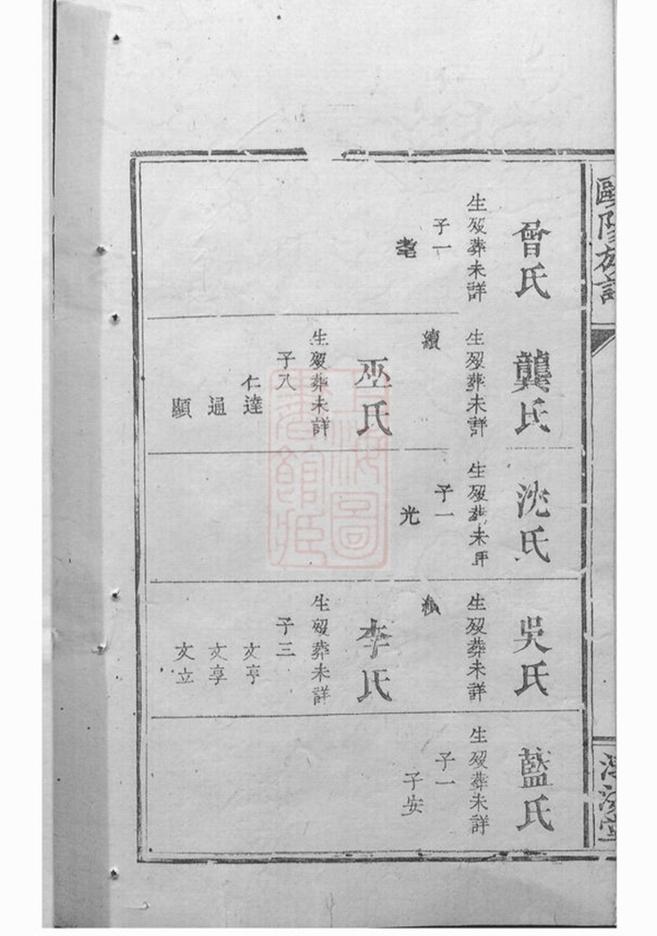 歐陽族譜
曾氏
生歿葬未詳
子一
耄
龔氏
生歿葬未詳
續
巫氏
生歿葬未詳
子八
仁達
通
顯
沈氏
生歿葬未詳
子一
光
吳氏
生歿葬未詳
李氏
生歿葬未詳
子三
文亨
文享
文立
藍氏
生歿葬未詳
子一
子安
上海圖
書館藏